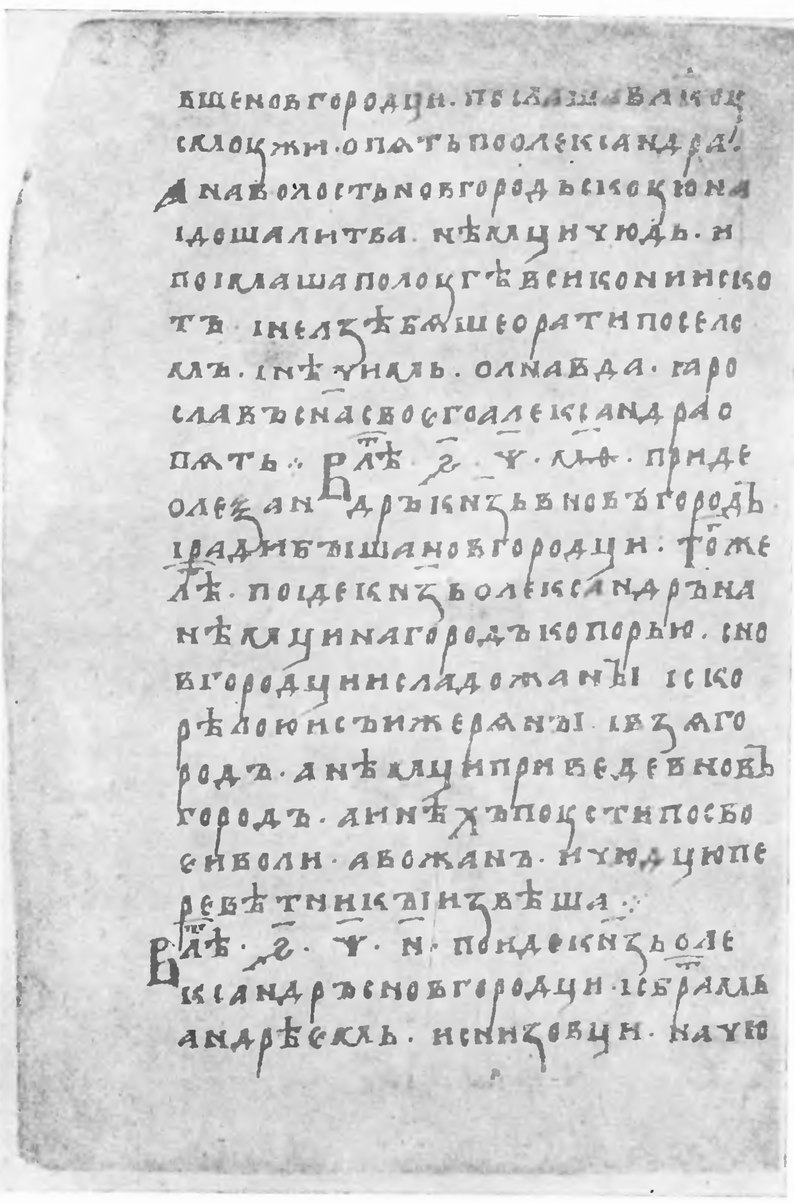 вшеновгородци · послаша влⷣкоу
смоужи · опѧть по олександра ·
а на волость новгородьскоую на
ідоша литва · нѣмци чюдь · и
поімаша по лоугѣ вси кони и ско
тъ · і нелзѣ бѧше орати по село
мъ · і нѣчимь · олна вда · ꙗро
славъ сн҃а своѥго александра о
пѧть ⁘ В лѣⷮ · ҂ѕ҃ · ѱ҃ · м҃ѳ · приде
олеѯандръ кнѧ҃зь в новъгородъ ·
і ради бꙑша новгородци · тоⷢже
лѣⷮ · поіде кн҃зь олександръ на
нѣмци на городъ копорью · с но
вгородци и с ладожанꙑ і с ко
рѣлою и с ъижерѧнꙑ · і взѧ го
родъ · а нѣмци приведе в новъ
городъ · а инѣхъ поусти по сво
ѥи воли · а вожанъ · и чюдцю пе
ревѣтникꙑ извѣша ⁘
В лѣⷮ · ҂ѕ҃ · ѱ҃ · н҃ · поиде кн҃зь оле
ксандръ с новгородци · і с браⷮмь
андрѣѥмь · и с низовци · на чю